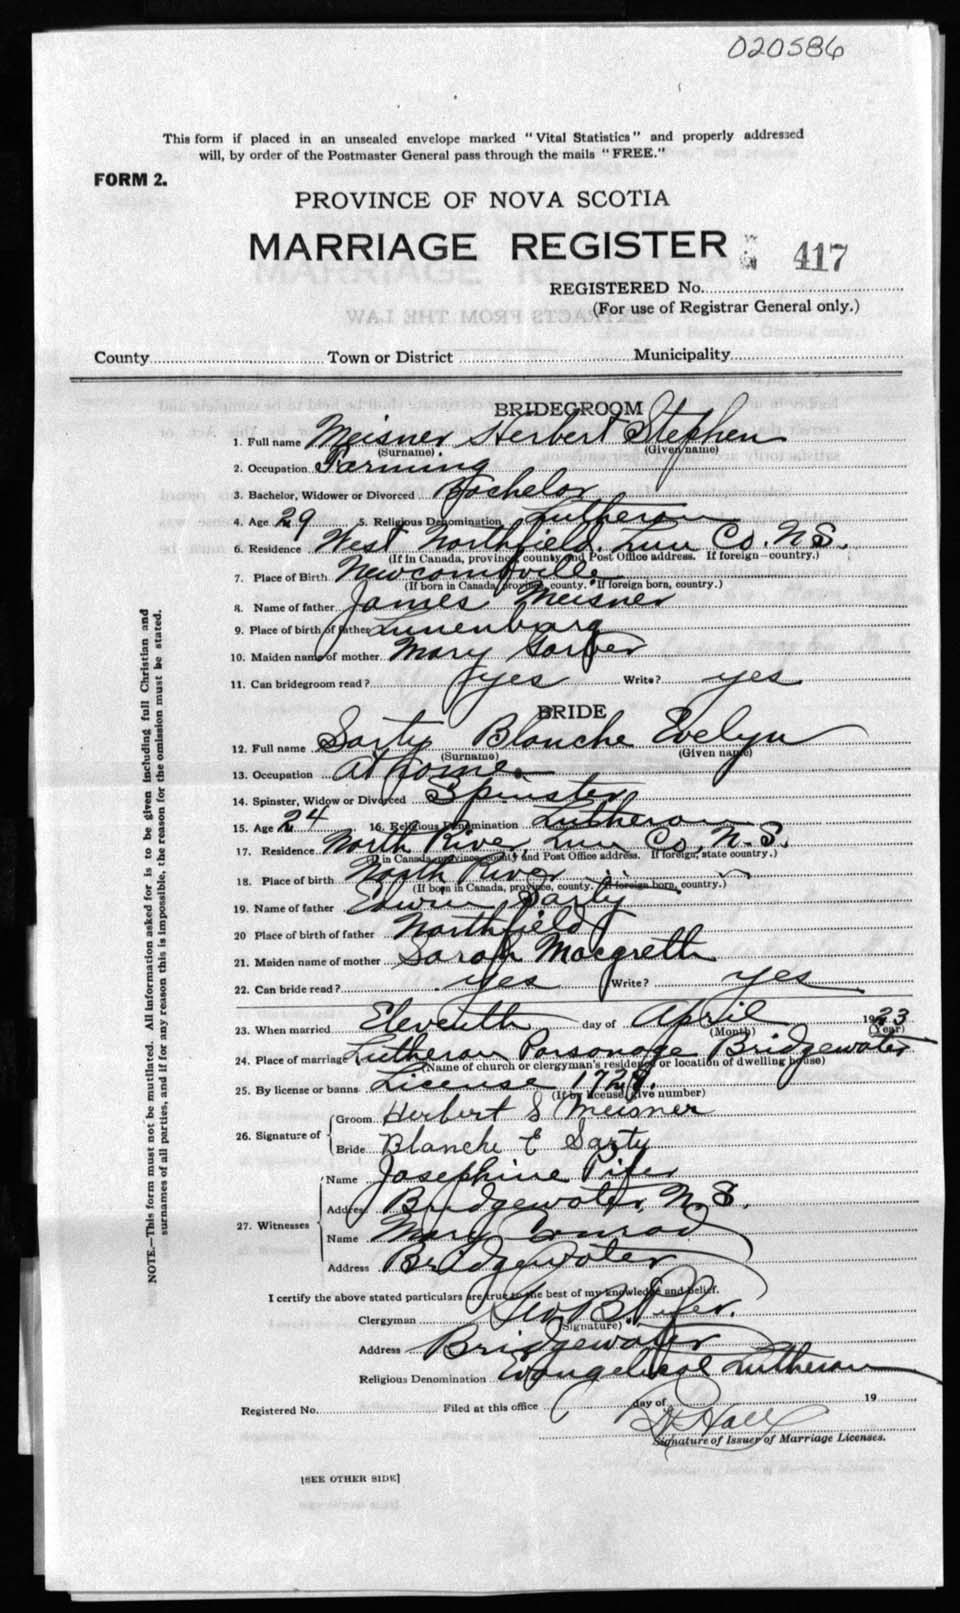 020586
This form if placed in an unsealed envelope marked "Vital Statistics" and properly addressed
will, by order of the Postmaster General pass through the mails "FREE."
FORM 2.
PROVINCE OF NOVA SCOTIA
MARRIAGE REGISTER
417
REGISTERED No.
(For use of Registrar General only.)
County Town or District Municipality
BRIDEGROOM
1. Full name Meisner Herbert Stephen
(Surname) (Given name)
2. Occupation Farming
3. Bachelor, Widower or Divorced Bachelor
4. Age 29 5. Religious Denomination Lutheran
6. Residence West Northfield, Lun Co. N.S.
(If in Canada, province, county and Post Office address. If foreign—country.)
7. Place of Birth Newcombville
(If born in Canada, province, county. If foreign born, country.)
8. Name of father James Meisner
9. Place of birth of father Lunenburg
10. Maiden name of mother Mary Garber
11. Can bridegroom read? yes Write? yes
BRIDE
12. Full name Sarty Blanche Evelyn
(Surname) (Given name)
13. Occupation at home
14. Spinster, Widow or Divorced Spinster
15. Age 24 16. Religious Denomination Lutheran
17. Residence North River, Lun Co, N.S.
(If in Canada, province, county and Post Office address. If foreign, state country.)
18. Place of birth North River
(If born in Canada, province, county. If foreign born, country.)
19. Name of father Edwin Sarty
20 Place of birth of father Northfield
21. Maiden name of mother Sarah Macgreth
22. Can bride read? yes Write? yes
23. When married Eleventh day of April 1923
(Month) (Year)
24. Place of marriage Lutheran Parsonage Bridgewater
(Name of church or clergyman's residence or location of dwelling house)
25. By license or banns License
(If by license, give number)
26. Signature of Groom Herbert S Meisner
Bride Blanche E Sarty
27. Witnesses Name Josephine Pifer
Address Bridgewater, N.S.
Name Mary Conrad
Address Bridgewater
I certify the above stated particulars are true to the best of my knowledge and belief.
Clergyman Geo B. Pifer.
(Signature)
Address Bridgewater
Religious Denomination Evangelical Lutheran
Registered No. Filed at this office day of 19
Hall
Signature of Issuer of Marriage Licenses.
[SEE OTHER SIDE]
NOTE.—This form must not be mutilated. All information asked for is to be given including full Christian and
surnames of all parties, and if for any reason this is impossible, the reason for the omission must be stated.